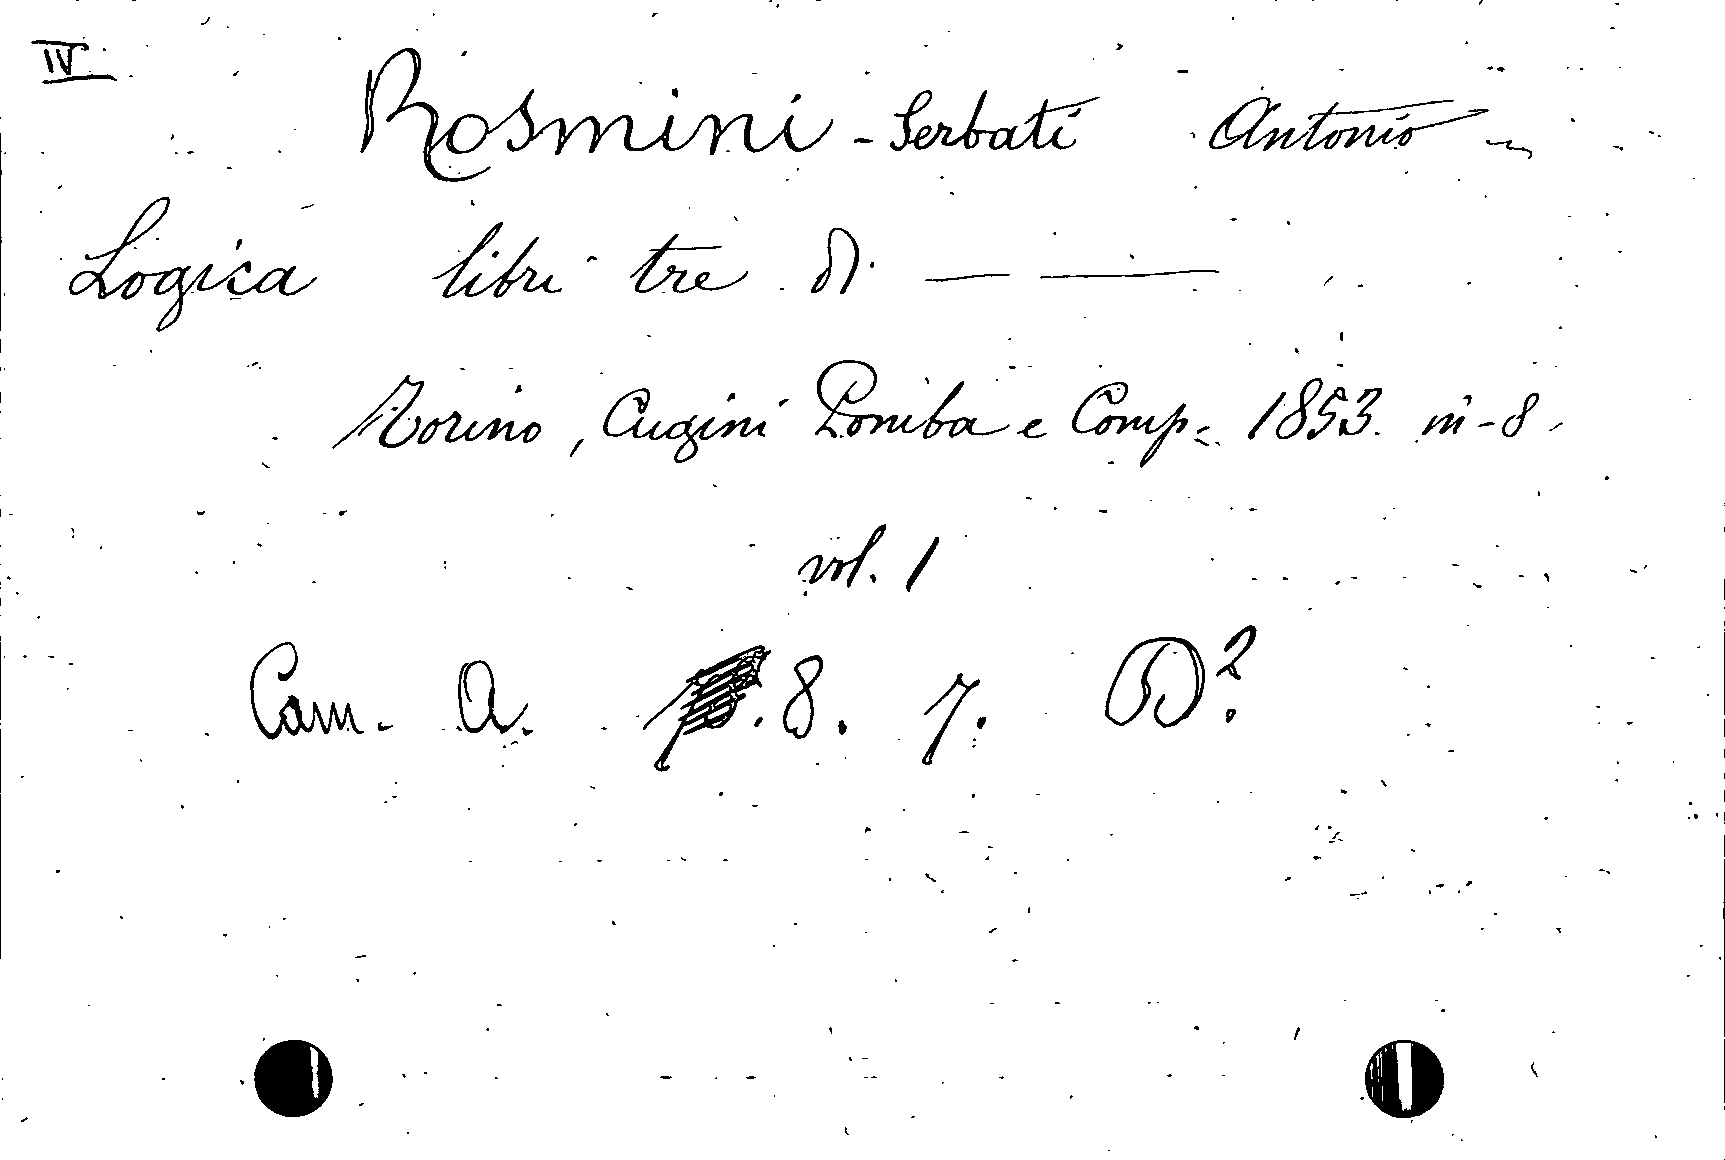 IV
Rosmini-Serbati Antonio
Logica libri tre di — —
Torino, Cugini Pomba e Comp. 1853 in-8
vol. 1
Cam. A. 8. 7. D².